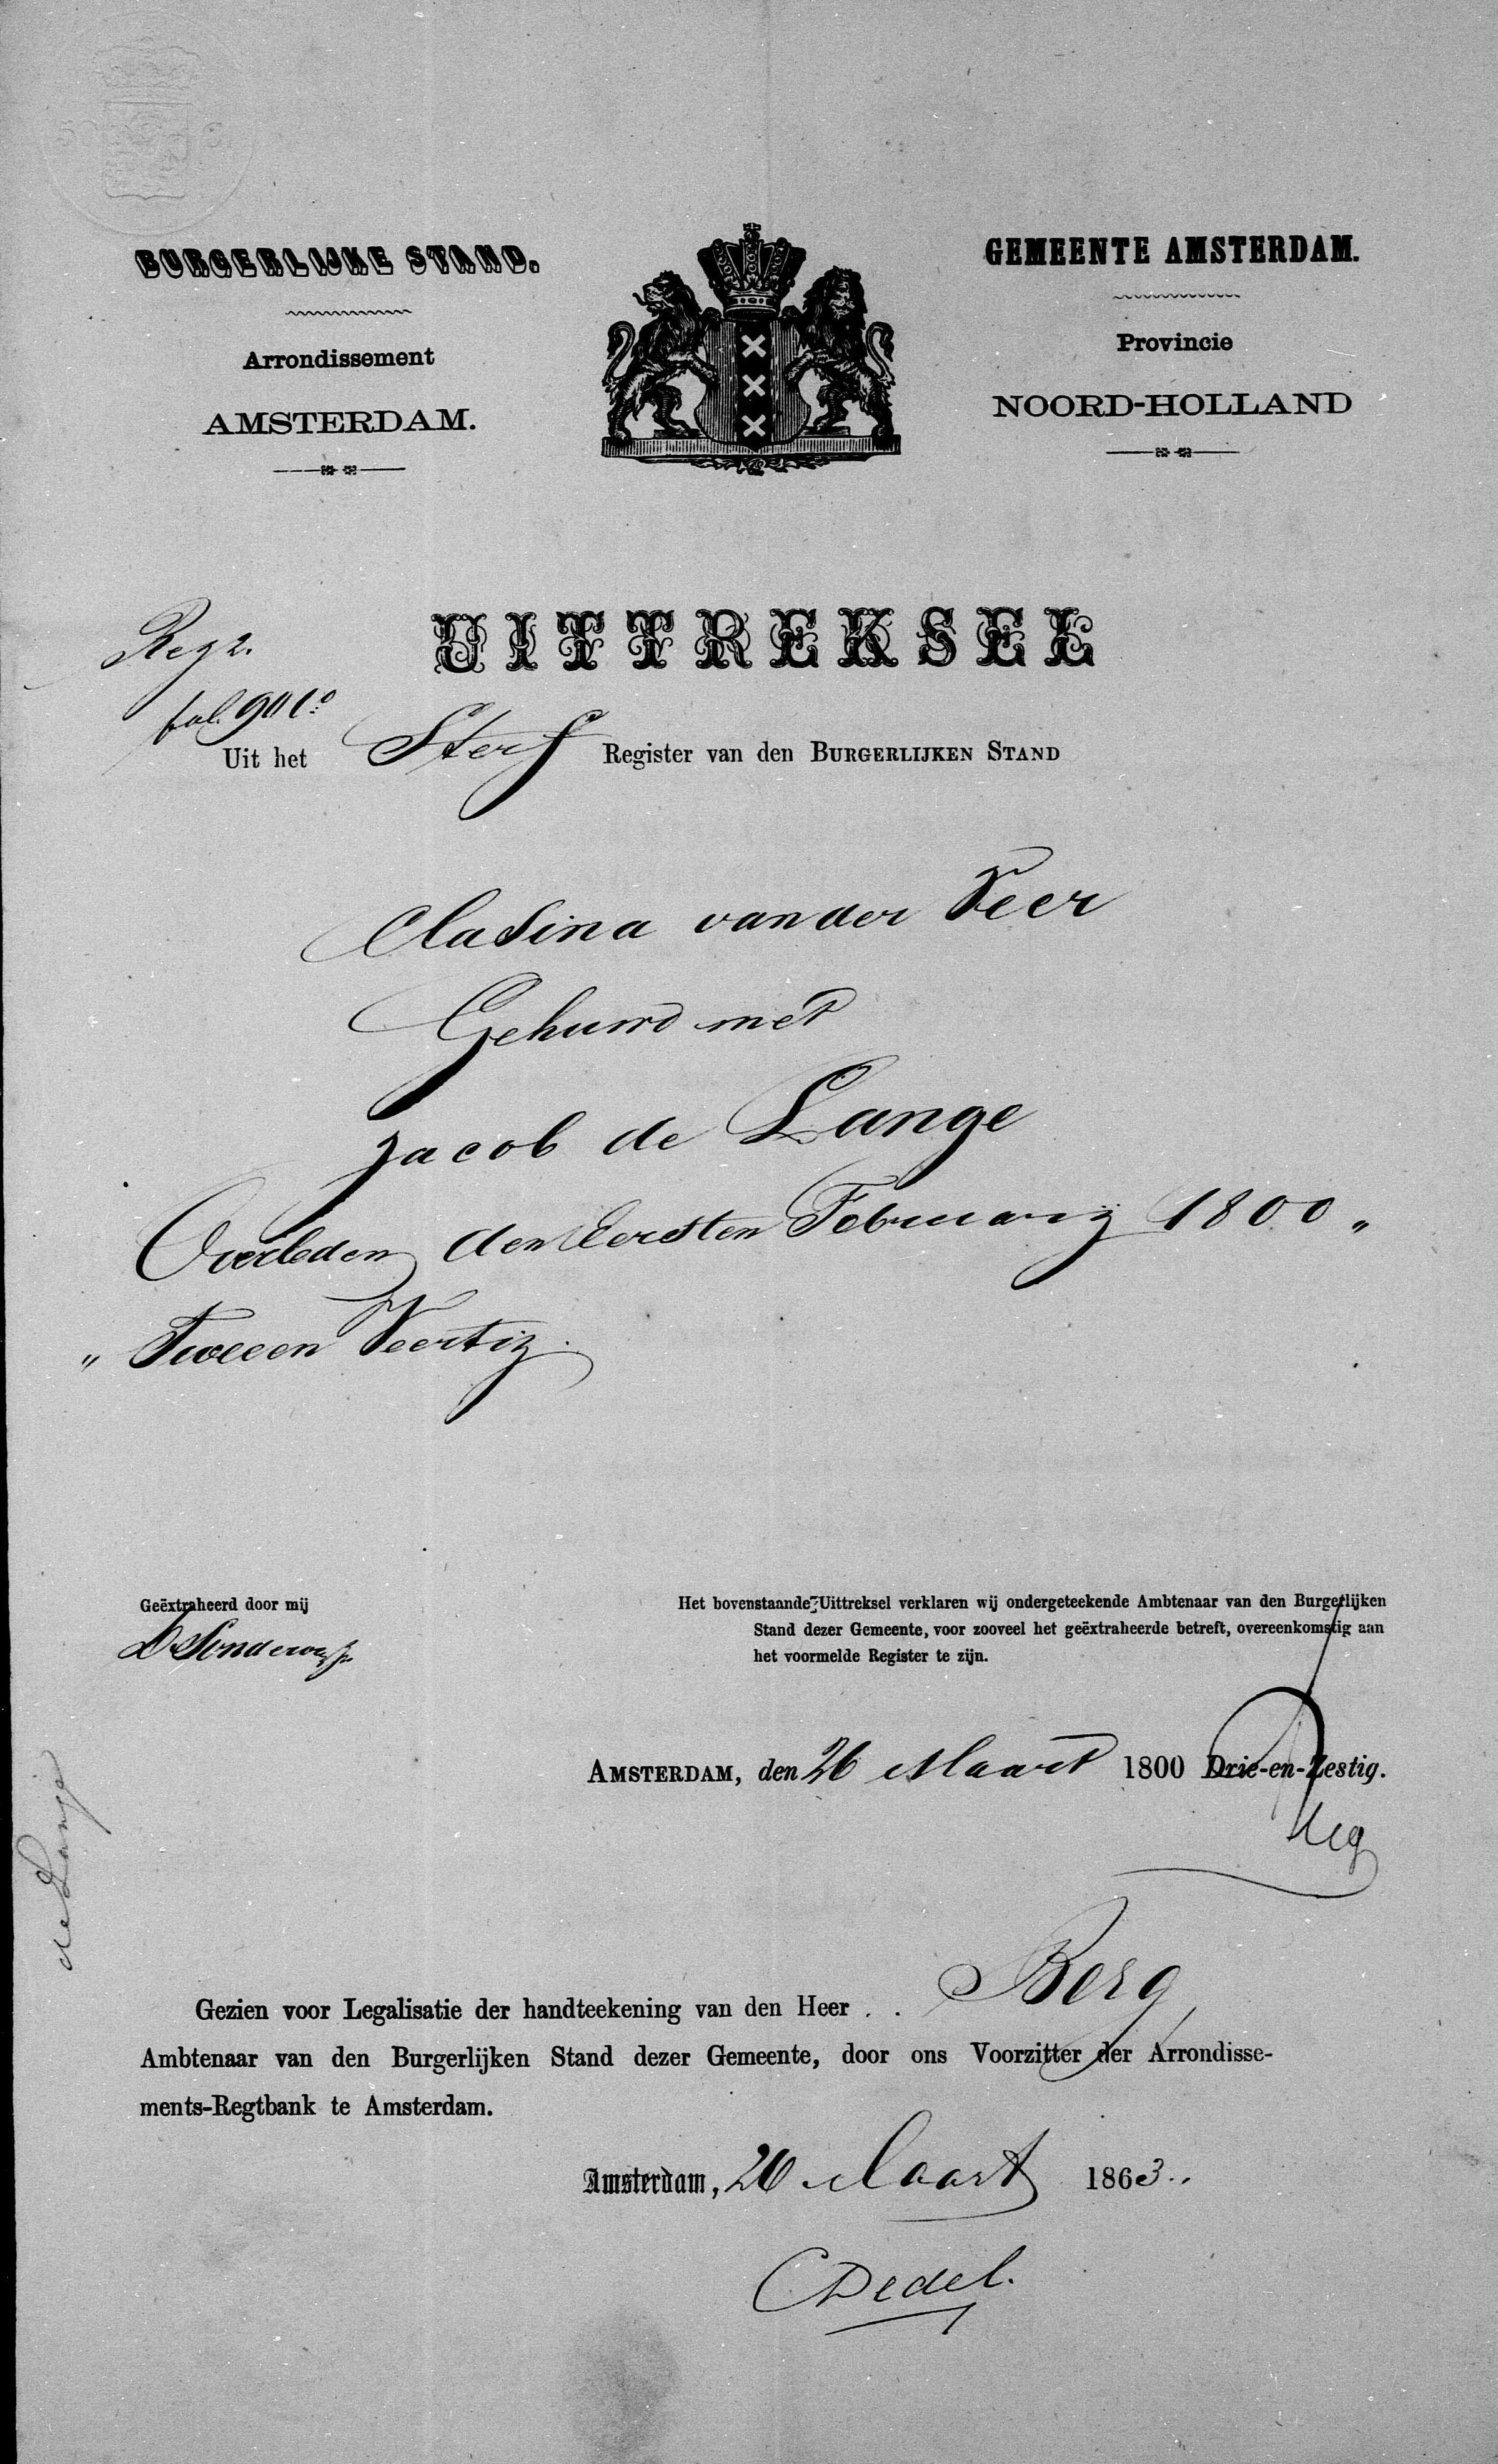 BURGERLIJKE STAND.
Arrondissement
AMSTERDAM.
GEMEENTE AMSTERDAM.
Provincie
NOORD-HOLLAND
UITTREKSEL
Reg 2.
fol. 90
Uit het Sterf Register van den BURGERLIJKEN STAND
Clasina van der Veer
Gehuwd met
Jacob de Lange
Overleden den Eersten February 1800 „
„ Tweeen Veertig.
Geëxtraheerd door mij
Het bovenstaande Uittreksel verklaren wij ondergeteekende Ambtenaar van den Burgerlijken
Stand dezer Gemeente, voor zooveel het geëxtraheerde betreft, overeenkomstig aan
het voormelde Register te zijn.
AMSTERDAM, den 26 Maart 1800 Drie-en-Zestig.
de Lange
Gezien voor Legalisatie der handteekening van den Heer . . Berg,
Ambtenaar van den Burgerlijken Stand dezer Gemeente, door ons Voorzitter der Arrondisse-
ments-Regtbank te Amsterdam.
Amsterdam, 26 Maart 1863.
CDedel.